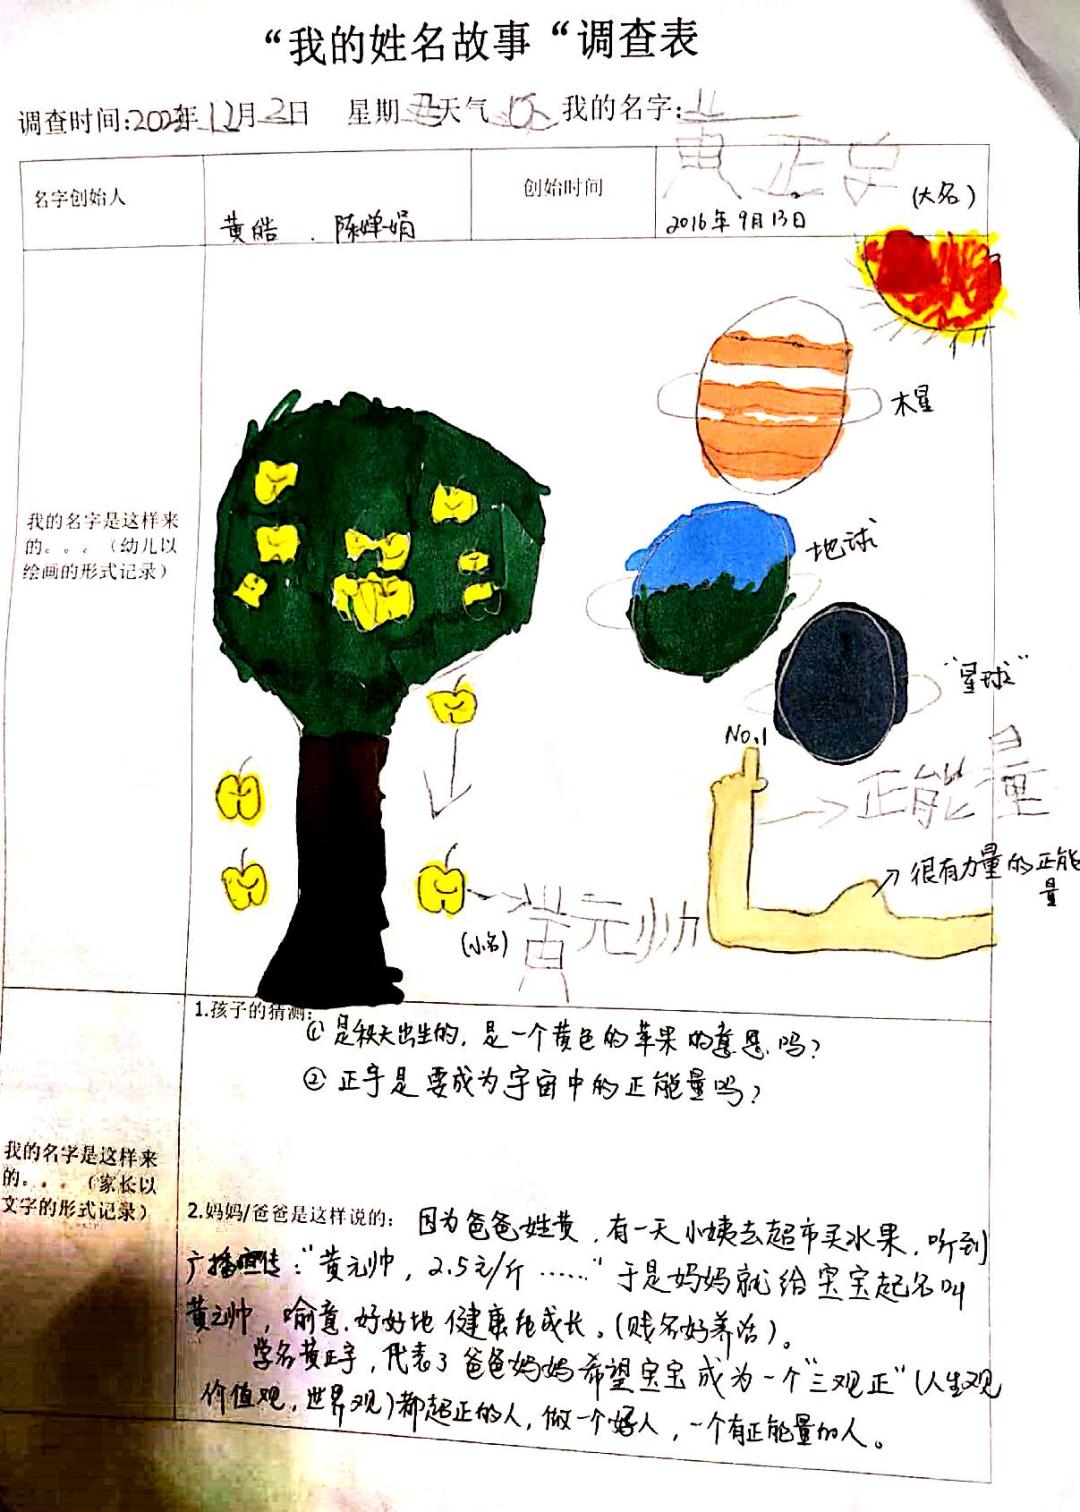 “我的姓名故事“调查表
调查时间:202 年12月2日 星期五天气 我的名字:
黄正宇
(大名)
名字创始人
黄皓、陈婵娟
创始时间
2016年9月13日
我的名字是这样来
的。。。(幼儿以
绘画的形式记录)
木星
地球
“星球”
No.1
正能量
很有力量的正能
量
黄元帅
(小名)
我的名字是这样来
的。。。(家长以
文字的形式记录)
1.孩子的猜测:
① 是秋天出生的,是一个黄色的苹果的意思吗?
② 正宇是要成为宇宙中的正能量吗?
2.妈妈/爸爸是这样说的: 因为爸爸姓黄,有一天小姨去超市买水果,听到
广播宣传:“黄元帅,2.5元/斤……”于是妈妈就给宝宝起名叫
黄元帅,喻意.好好地健康地成长。(贱名好养活)。
学名黄正宇,代表了爸爸妈妈希望宝宝成为一个“三观正”(人生观
价值观,世界观)都超正的人,做一个好人,一个有正能量的人。